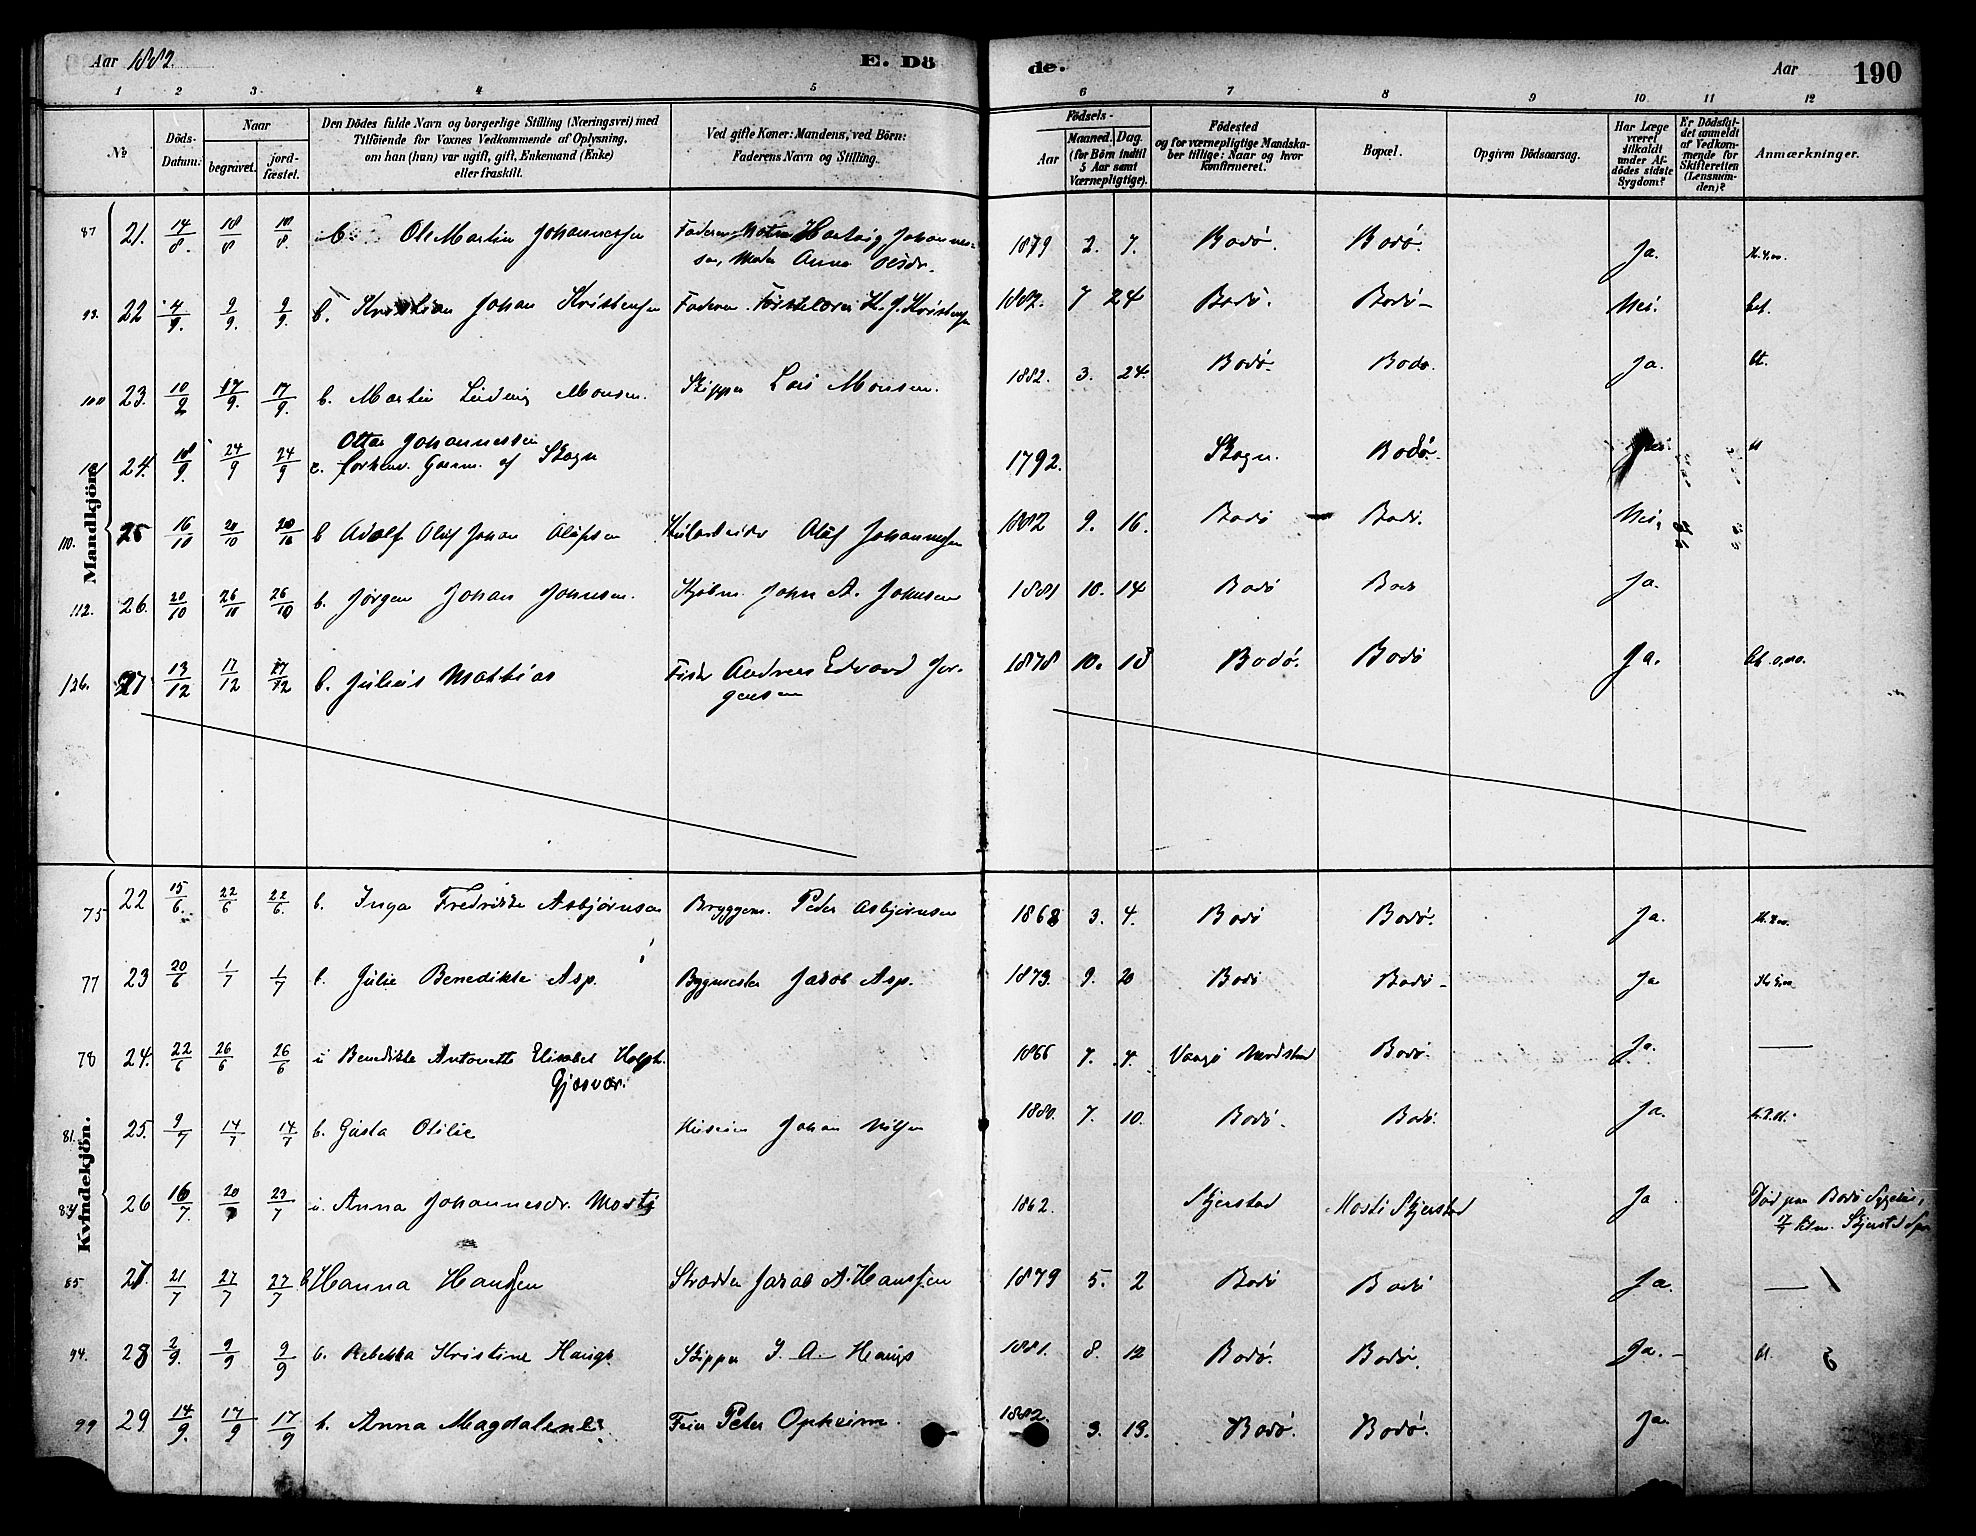 Aar 1882. E. Dö de. Aar 190
1 2 3 4 5 6 7 8 9 10 11 12
No
Döds-Datum:
Naar
begravet.
jordfæstet.
Den Dödes fulde Navn og borgerlige Stilling (Næringsvei) med
Tilföiende for Voxnes Vedkommende af Oplysning,
om han (hun) var ugift, gift, Enkemand (Enke)
eller fraskilt.
Ved gifte Koner: Mandens, ved Börn:
Faderens Navn og Stilling.
Födsels-
Aar
Maaned. Dag.
(for Börn indtil
5 Aar samt
Værnepligtige).
Födested
og for værnepligtige Mandska-
ber tillige: Naar og hvor
konfirmeret.
Bopæl.
Opgiven Dödsaarsag.
Har Læge
været
tilkaldt
under Af-
dödes sidste
Sygdom?
Er Dödsfal-
det anmeldt
af Vedkom-
mende for
Skifteretten
(Lensman-
den)?
Anmærkninger.
Mandkjön.
87 21. 14/8. 18/8 18/8. b. Ole Martin Johannessen Faderen Hartvig Johannes- 1879 2. 7. Bodø. Bodø. Ja.
sen, Moder Anna Olsdr.
93. 22 4/9. 9/9. 9/9. b. Kristian Johan Kristensen Faderen Førstelærer K. J. Kristensen 1882. 7 24 Bodø. Bodø Nei. bet.
100 23. 10/9 17/9. 17/9. b. Martin Ludvig Monsen. Skipper Lars Monsen. 1882. 3. 24. Bodø. Bodø. Ja. bt.
24. 18/9. 24/9 24/9 e. Ottar Johannessen 1792. Skogn. Bodø. bt
forhenv. Gaarm. af Skogn
110. 25 16/10 20/10 20/10 b Adolf Oluf Johan Olufsen Oluf Johannessen 1882 9. 16. Bodø Bodø. Nei.
112. 26. 20/10 26/10 26/10 b. Jørgen Johan Johnsen. Kjøbm. John A. Johnsen 1881 10. 14 Bodø Bodø Ja.
126. 27 13/12 17/12 17/12 b. Julius Mathias Fisker Andreas Edvard Jør- 1878 10. 18 Bodø. Bodø Ja. bt. 0,80.
gensen
Kvindekjön.
75 22 15/6. 22/6 22/6. b. Inga Fredrikke Asbjørnsen Bryggem. Peder Asbjørnsen 1868 3. 4. Bodø Bodø. Ja.
77 23 20/6 1/7 1/7 b. Julie Benedikte Asp. Bygmester Jakob Asp. 1873. 9. 20 Bodø Bodø Ja
78 24. 22/6 26/6 26/6 u Benedikte Antonette Elisabet 1866 7. 4. Bodø. Ja. —
Gjæsvær.
81. 25. 9/7 14/7 14/7 b. Gusta Otilie Johan 1880. 7. 10. Bodø. Bodø. Ja.
84 26 16/7. 20/7 23/7 u. Anna Johannesdr. Mosti 1862. Skjerstad Mosti Skjerstad Ja Død paa Bodø Sygehus,
Skjerstad
85 27. 21/7 27/7 27/7 b Hanna Hansen Skrædder Jakob A. Hanssen 1879 5. 2 Bodø Bodø Ja. —
94. 28 2/9. 9/9 9/9 b. Rebekka Kristine Haugs Skipper J. A. Haugs 1881. 8. 12 Bodø. Bodø. Ja. bt.
99 29 14/9. 17/9 17/9 b. Anna Magdalene. Feier Peter Opheim. 1882. 3. 19. Bodø. Bodø. Ja.